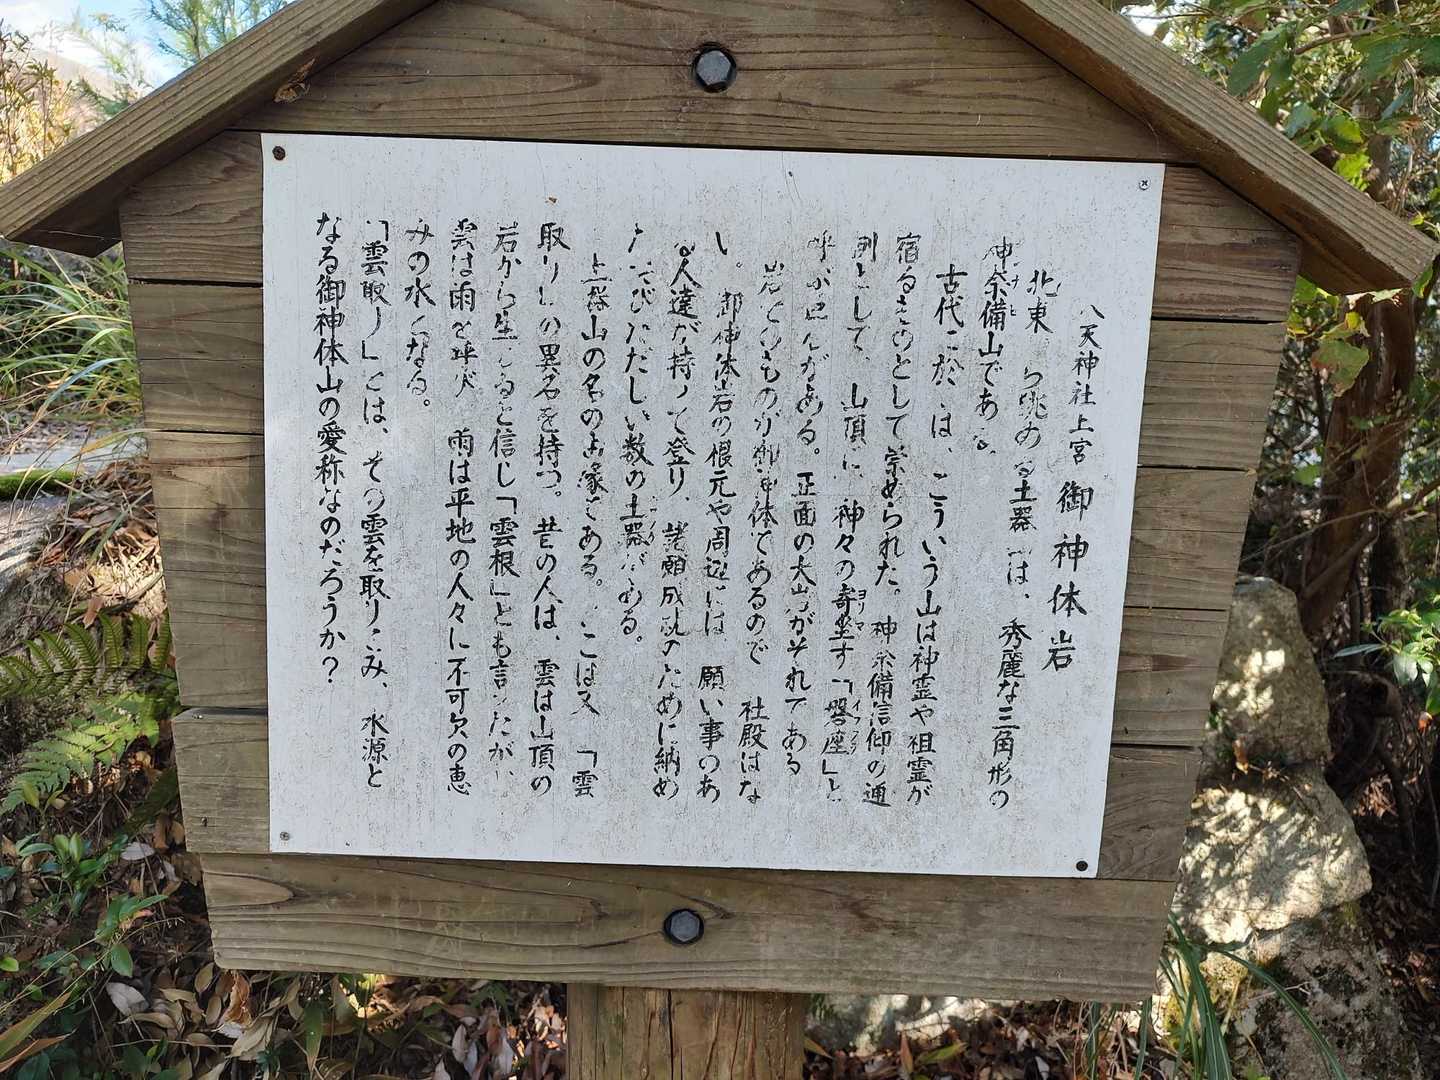 八天神社上宮 御神体岩
北東 ら眺める土器 は、秀麗な三角形の
神奈備山である。
古代に於 は、こういう山は神霊や祖霊が
宿るものとして崇められた。神奈備信仰の通
例として、山頂に 神々の寄坐す「磐座」と
呼ぶ巨岩がある。正面の大岩がそれである
岩そのものが御神体であるので 社殿はな
い。 御神体岩の根元や周辺には 願い事のあ
る人達が持って登り、諸願成就のために納め
たおびただしい数の土器がある。
土器山の名の由縁である。ここは又 「雲
取り」の異名を持つ。昔の人は、雲は山頂の
岩から生じると信じ「雲根」とも言ったが、
雲は雨を呼び 雨は平地の人々に不可欠の恵
みの水となる。
「雲取り」とは、その雲を取りこみ、水源と
なる御神体山の愛称なのだろうか？